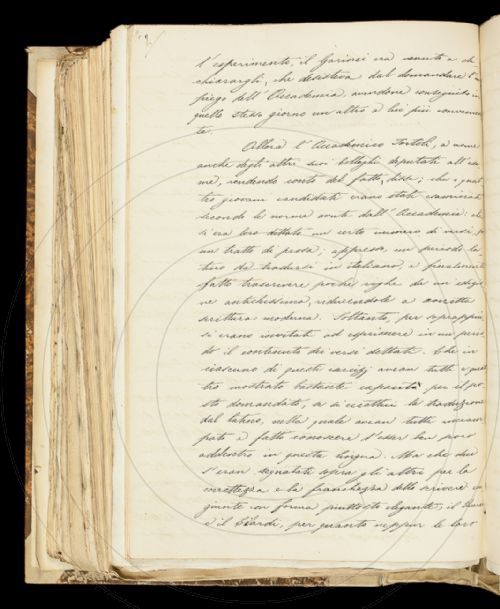 l'esperimento, il Gori era venuto a di
chiarargli, che desisteva dal domandare l'im
piego dell'Accademia, avendone conseguito in
quello stesso giorno un altro a lui più convenien
te.
Allora l'Accademico Tortoli, a nome
anche degli altri suoi colleghi deputati all'esa
me, rendendo conto del fatto, disse; che i quat
tro giovani candidati erano stati esaminati
secondo le norme avute dall'Accademia: che
si era loro dettato un certo numero di versi, e
un tratto di prosa; appresso, un periodo la
tino da tradursi in italiano, e finalmente
fatto trascrivere poche righe da un codice
antichissimo, riducendole a corretta
scrittura moderna. Soltanto, per soprappiù
si erano invitati ad esprimere in un perio
do il contenuto dei versi dettati. Che in
ciascuno di questi esercizj avean tutti e quat
tro mostrato bastante capacità per il po
sto domandato, se si eccettui la traduzione
dal latino, nella quale avean tutti inciam
pato e fatto conoscere d'esser ben poco
addestro in questa lingua. Ma che due
s'eran segnalati sopra gli altri per la
correttezza e la franchezza dello scrivere con
giunte con forma piuttosto elegante; il
e il Ciardi, per quanto neppur le loro